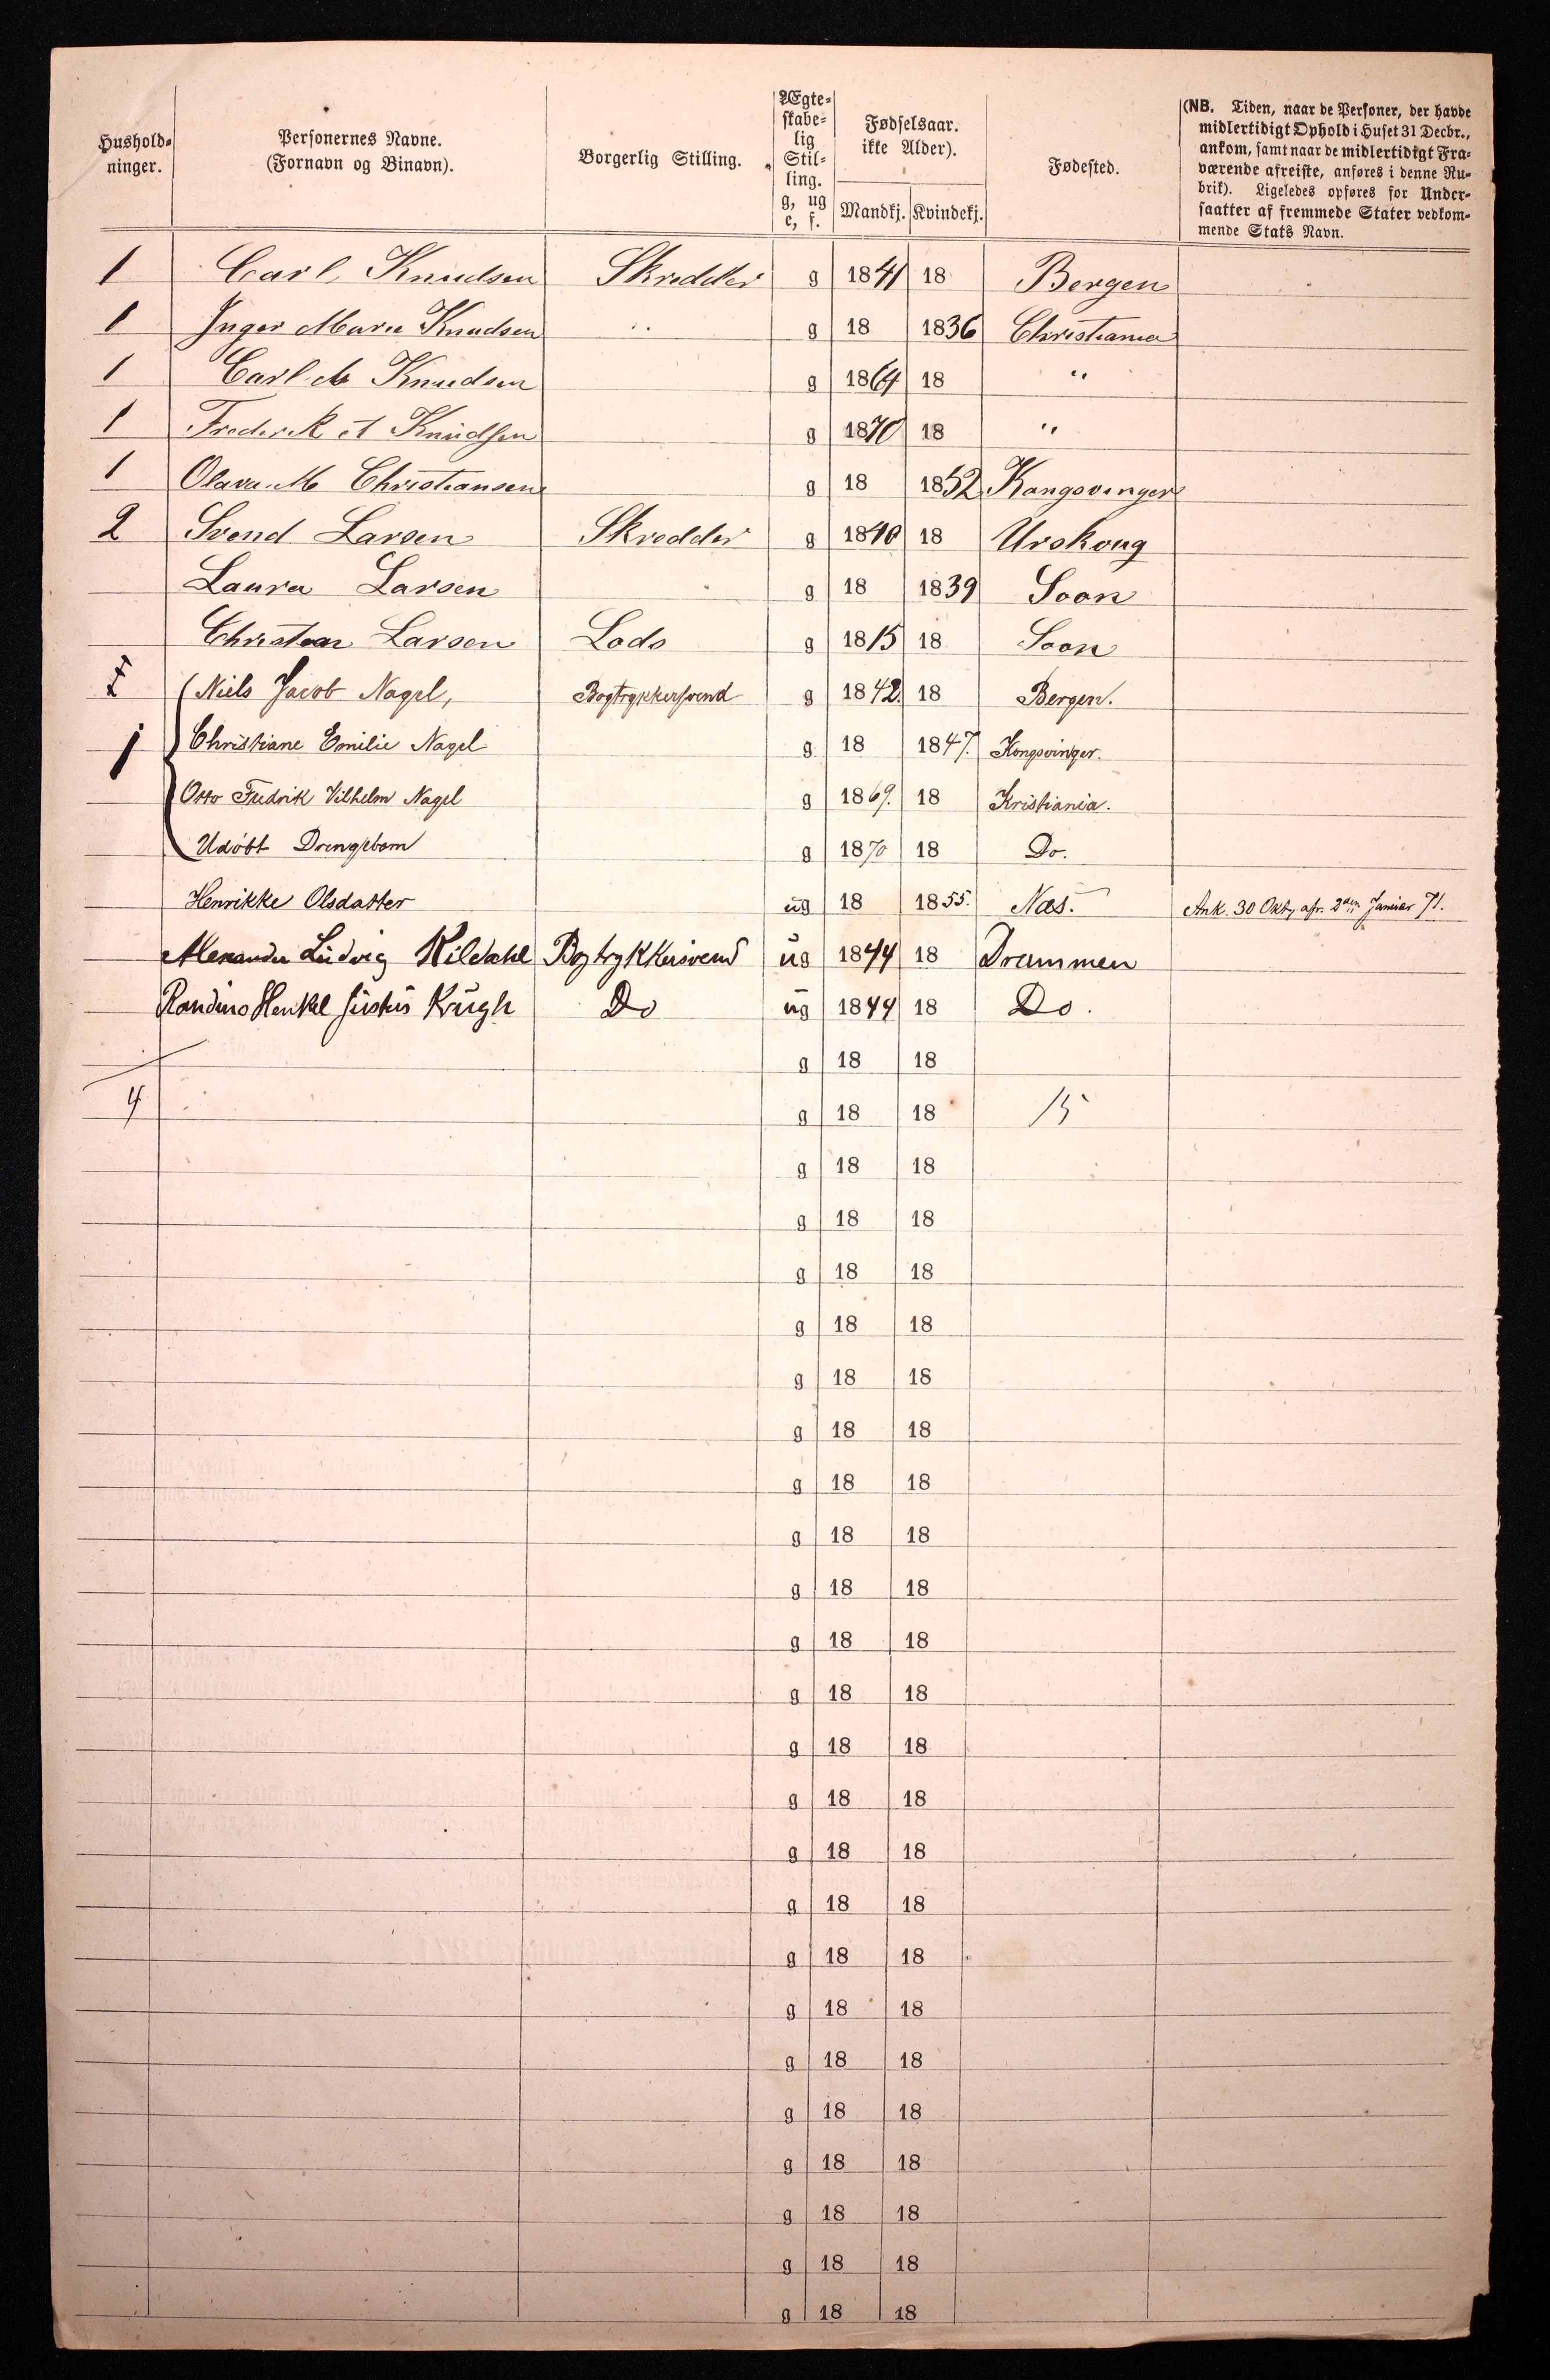 Hushold-
ninger.
Personernes Navne.
(Fornavn og Binavn).
Borgerlig Stilling.
Ægte-
skabe-
lig
Stil-
ling.
g, ug
e, f.
Fødselsaar.
ikke Alder).
Mandkj. Kvindekj.
Fødested.
(NB. Tiden, naar de Personer, der havde
midlertidigt Ophold i Huset 31 Decbr.,
ankom, samt naar de midlertidigt Fra-
værende afreiste, anføres i denne Ru-
brik). Ligeledes opføres for Under-
saatter af fremmede Stater vedkom-
mende Stats Navn.
1 Carl Knudsen Skredder g 1841 18 Bergen
1 Inger Marie Knudsen " g 18 1836 Christiania
1 Carl M Knudsen g 1864 18 "
1 Frederik A Knudsen g 1870 18 "
1 Olava M Christiansen g 18 1852 Kongsvinger
2 Svend Larsen Skredder g 1840 18 Urskoug
Laura Larsen g 18 1839 Soon
Christian Larsen Lods g 1815 18 Soon
Niels Jacob Nagel, Bogtrykkersvend g 1842. 18 Bergen.
1 Christiane Emilie Nagel g 18 1847. Kongsvinger.
Otto Fredrik Vilhelm Nagel g 1869. 18 Kristiania.
Udöbt Drengebarn g 1870 18 Do.
Henrikke Olsdatter ug 18 1855. Næs. Ank. 30 Okt, afr. 2den Januar 71.
Alexander Ludvig Kildahl Bogtrykkersvend ug 1844 18 Drammen
Randinus Henkel Justus Krügh Do ug 1844 18 Do.
g 18 18
4 g 18 18 15
g 18 18
g 18 18
g 18 18
g 18 18
g 18 18
g 18 18
g 18 18
g 18 18
g 18 18
g 18 18
g 18 18
g 18 18
g 18 18
g 18 18
g 18 18
g 18 18
g 18 18
g 18 18
g 18 18
g 18 18
g 18 18
g 18 18
g 18 18